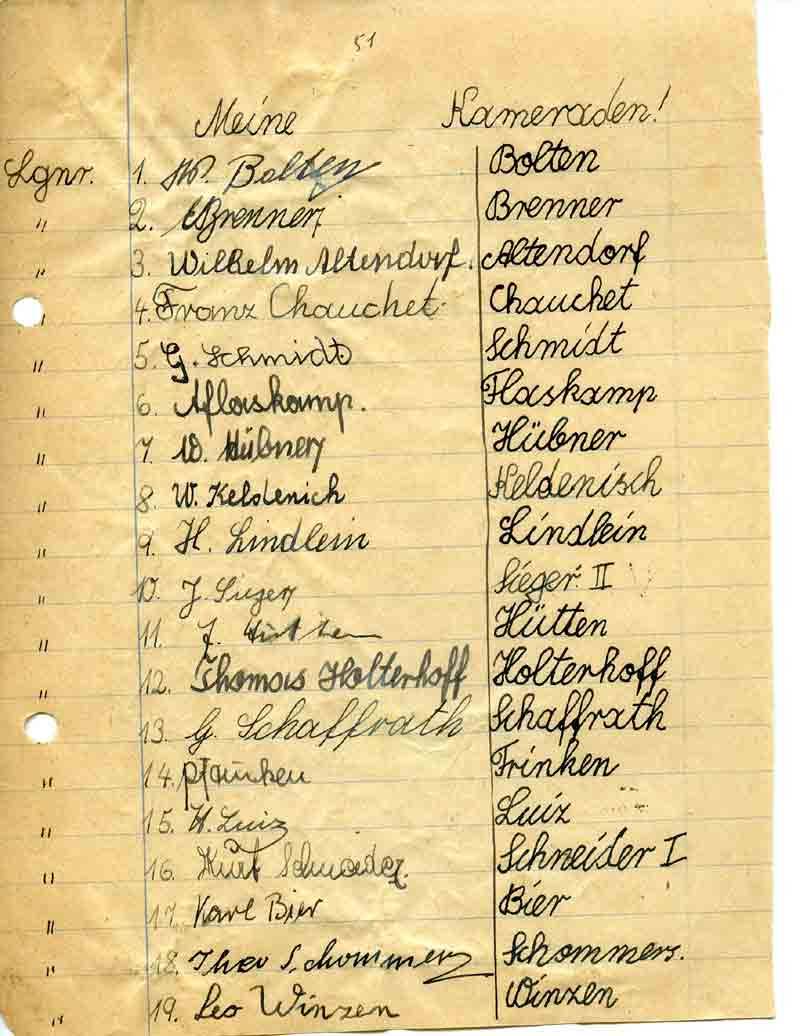 51
Meine Kameraden!
Lgnr. 1. W. Bolten Bolten
" 2. Brenner Brenner
" 3. Wilhelm Altendorf. Altendorf
" 4. Franz Chauchet. Chauchet
" 5. G. Schmidt Schmidt
" 6. A Flaskamp. Flaskamp
" 7. W. Hübner Hübner
" 8. W. Keldenich Keldenisch
" 9. H. Lindlein Lindlein
" 10. J. Sieger Sieger II
" 11. J. Hütten Hütten
" 12. Thomas Holterhoff Holterhoff
" 13. G. Schaffrath Schaffrath
" 14. Frinken
" 15. H. Luiz Luiz
" 16. Kurt Schneider. Schneider I
" 17. Karl Bier Bier
" 18. Theo Schommerz Schommers.
" 19. Leo Winzen Winzen